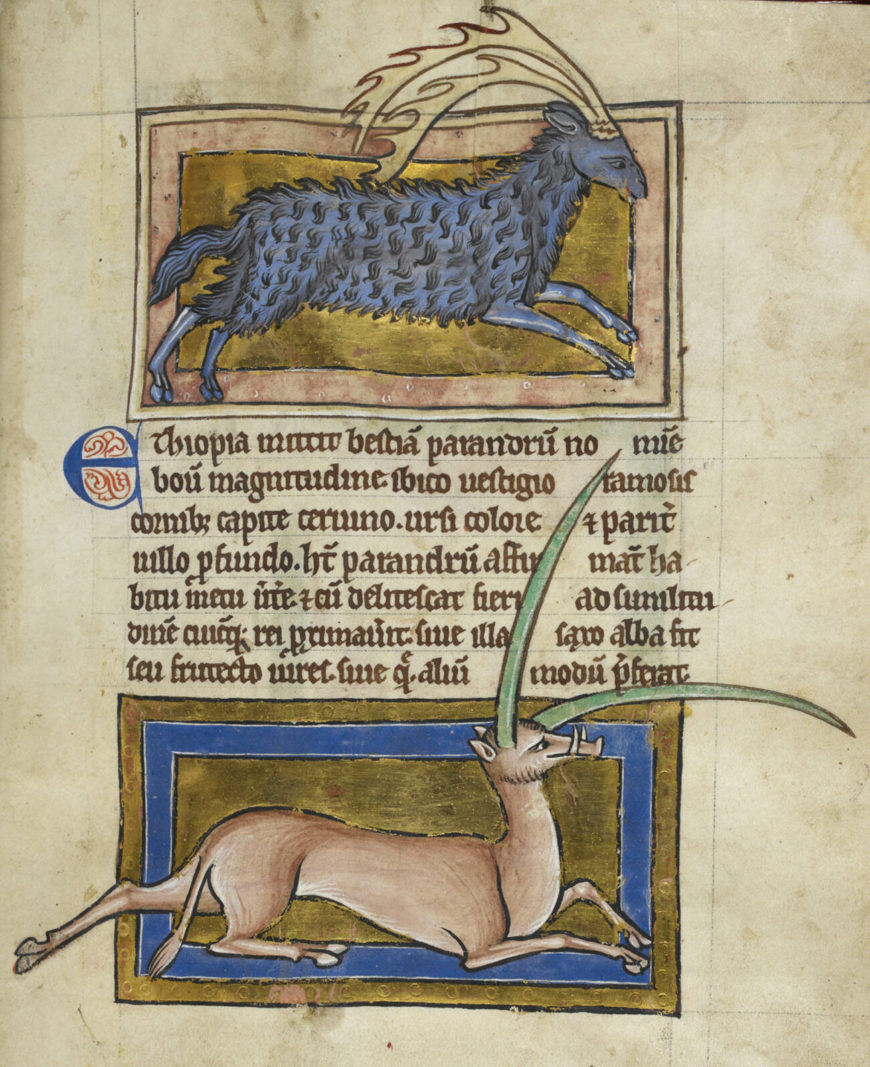 Ethiopia mittit bestiã parandrũ no mĩe
boũ magnitudine. ibico uestigio ramosis
cornibꝫ capite ceruino. ursi colore ⁊ parit᷑
uillo ꝓfundo. ht̃ parandrũ affir mãt ha
bitũ metu ũt̃e. ⁊ cũ delitescat fieri ad similitu
dinẽ cuicq̃; rei ꝓximaũit. siue illa saxo alba sit
seu frutecto uires. siue q̃. aliũ modũ p̃ferat.